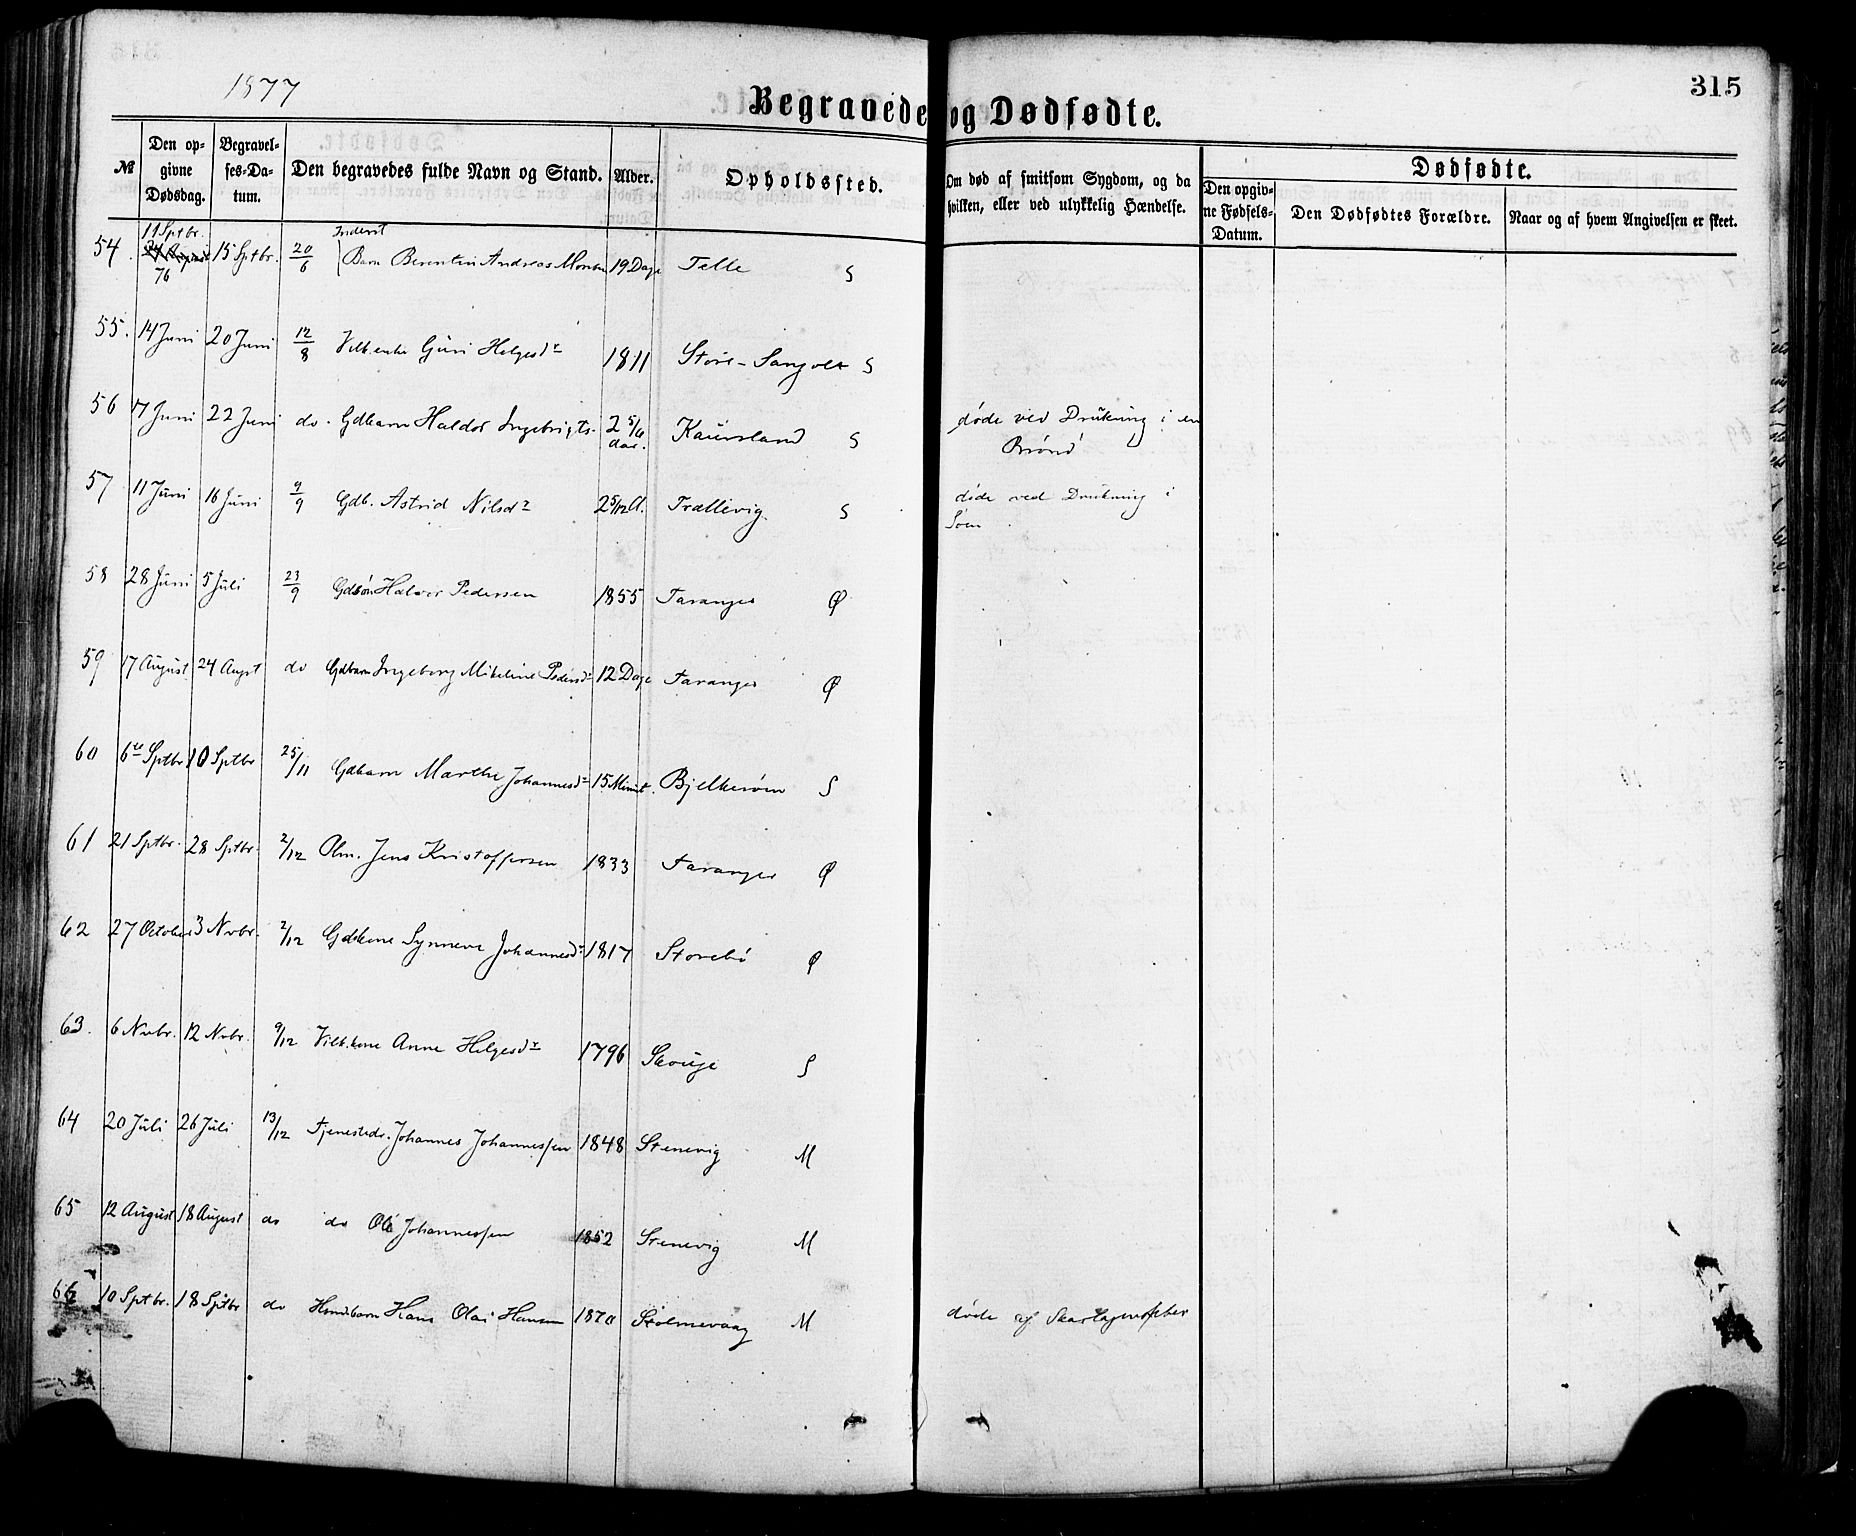 1877
315
Begravede og Dødfødte.
№
Den opgivne Dødsdag.
Begravelses-Datum.
Den begravedes fulde Navn og Stand.
Alder.
Opholdssted.
Om død af smitsom Sygdom, og da hvilken, eller ved ulykkelig Hændelse.
Dødfødte.
Den opgivne Fødsels-Datum.
Den Dødfødtes Forældre.
Naar og af hvem Angivelsen er skeet.
54. 11 Sptbr. 76 15 Sptbr. 20/6 Barn Berentin Andreas 19 Dage Telle S
55. 14 Juni 20 Juni 12/8 Guri Helgesdr 1811 Store-Sangolt S
56 17 Juni 22 Juni do. Gdbarn Haldor Ingebrigts. 2 5/6 aar. Kausland S døde ved Drukning i en
Brønd
57 11 Juni 16 Juni 9/9 Gdb. Astrid Nilsdr 2 5/12 A. Trællevig. S døde ved Drukning i
Søen
58 28 Juni 5 Juli 23/9 Gdsøn Halvor Pedersen 1855 Faranger Ø
59 17 August 24 Augst do Gdbarn Ingeborg Mikeline Pedersdr 12 Dage Faranger Ø
60 6te Sptbr 10 Sptbr 25/11 Gdbarn Marthe Johannesdr 15 Minut. Bjelkerøen S
61 21 Sptbr. 28 Sptbr. 2/12 Olm. Jens Kristoffersen 1833 Faranger Ø
62 27 October 3 Nvbr. 2/12 Gdkone Synneve Johannesdr 1817 Storebø Ø
63. 6 Nvbr. 12 Nvbr. 9/12 Vilk.kone Anne Helgesdr 1796 Skouge S
64 20 Juli 26 Juli 13/12 Tjenestedr. Johannes Johannessen 1848 Stenevig M
65 12 August 18 August do do Ole Johannessen 1852 Stenevig M
66 10 Sptbr. 18 Sptbr do Hans Olai Hansen 1870 Stolmevaag M døde af Skarlagensfeber